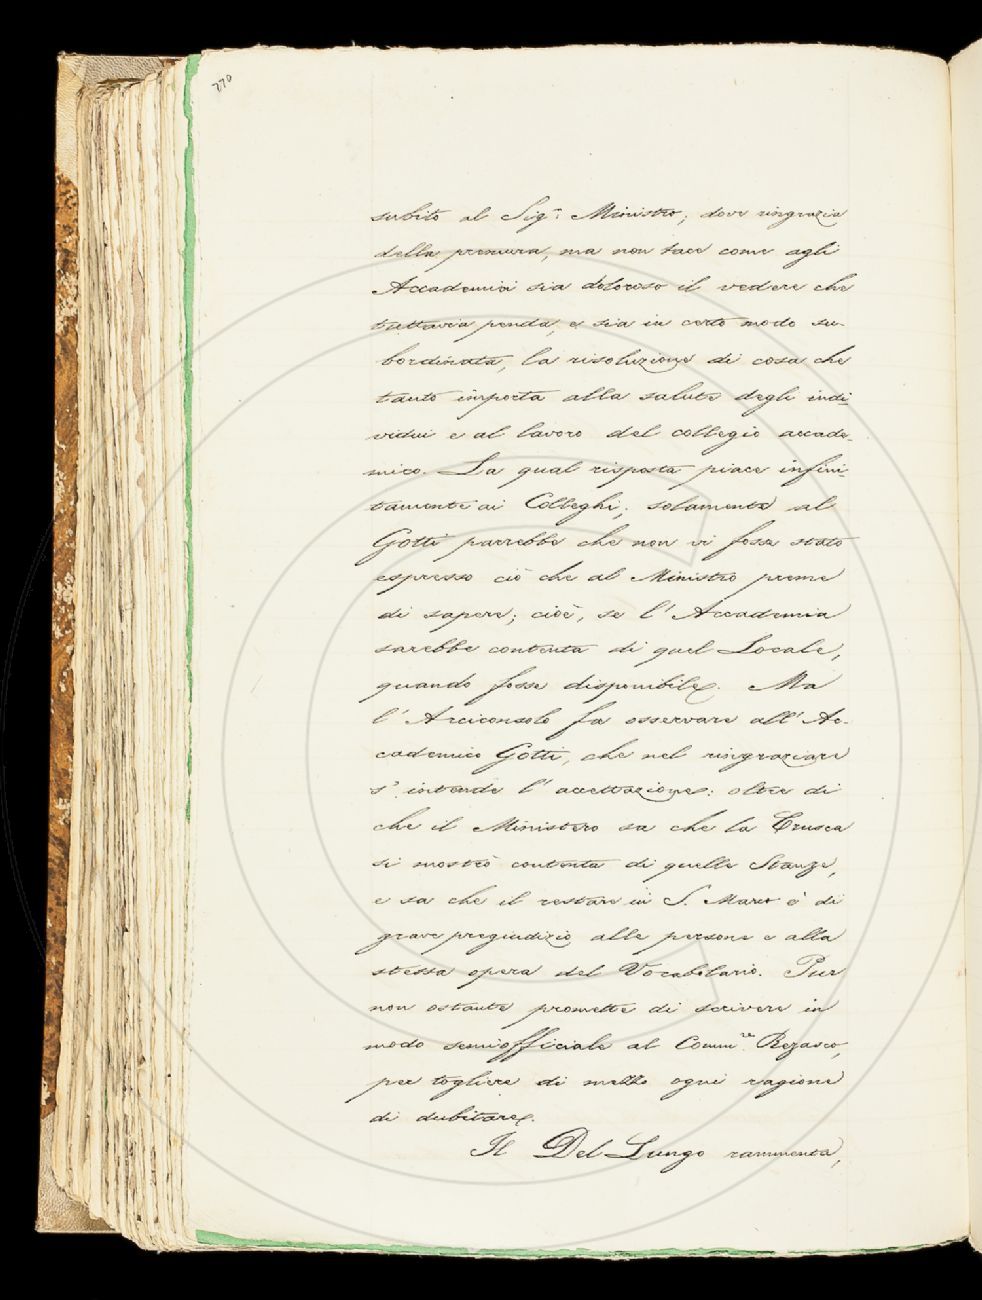 270
subito al Sig.r Ministro; dove ringrazia
della premura, ma non tace come agli
Accademici sia doloroso il vedere che
tuttavia penda, e sia in certo modo su-
bordinata, la risoluzione di cosa che
tanto importa alla salute degli indi-
vidui e al lavoro del collegio accade-
mico. La qual risposta piace infini-
tamente ai Colleghi; solamente al
Gotti parrebbe che non vi fosse stato
espresso ciò che al Ministro preme
di sapere; cioè, se l'Accademia
sarebbe contenta di quel Locale,
quando fosse disponibile. Ma
l'Arciconsolo fa osservare all'Ac-
cademico Gotti, che nel ringraziare
s'intende l'accettazione: oltre di
che il Ministero sa che la Crusca
si mostrò contenta di quelle Stanze,
e sa che il restare in S. Marco è di
grave pregiudizio alle persone e alla
stessa opera del Vocabolario. Pur
non ostante promette di scrivere in
modo semiofficiale al Comm.re Rezasco,
per togliere di mezzo ogni ragione
di dubitare.
Il Del Lungo rammenta,